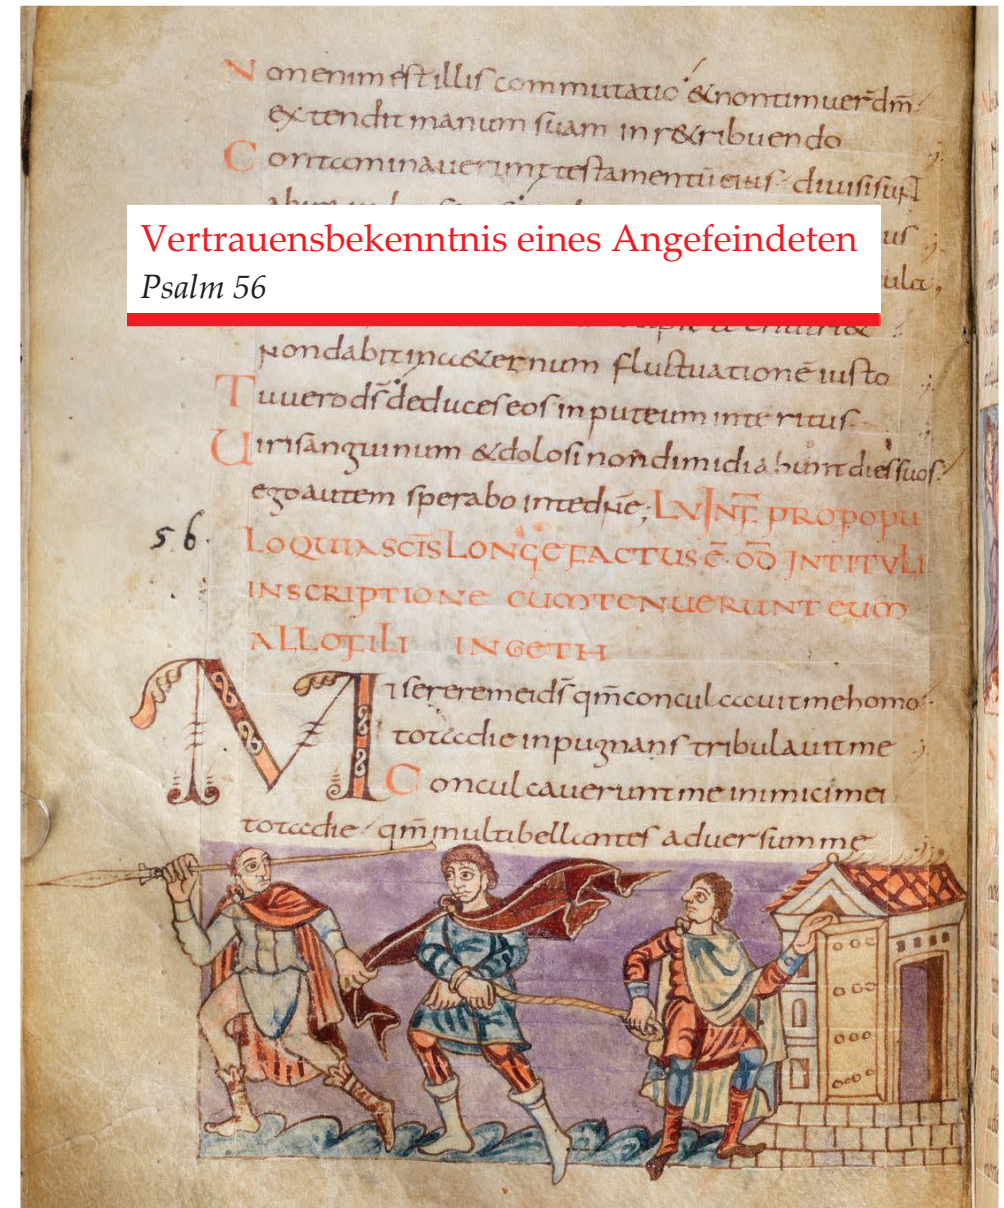 Non enim est illis commutatio & non timuer̄ dm̄
extendit manum suam in r&ribuendo
Contaminaverunt testamentū eius divisi sunt
Vertrauensbekenntnis eines Angefeindeten
Psalm 56
Non dabit in &ernum fluctuationē iusto
Tu vero ds̄ deduces eos in puteum interitus
Viri sanguinum & dolosi non dimidiabunt dies suos
ego autem sperabo in te dn̄e; LV INT̄ PRO POPU
56.
LO QUI A SCĪS LONGE FACTUS Ē D̄D IN TITVLI
INSCRIPTIONE CUM TENUERUNT EUM
ALLOFILI IN GETH
Miserere mei ds̄ qm̄ conculcavit me homo
tota die inpugnans tribulavit me
Conculcaverunt me inimici mei
tota die qm̄ multi bellantes adversum me